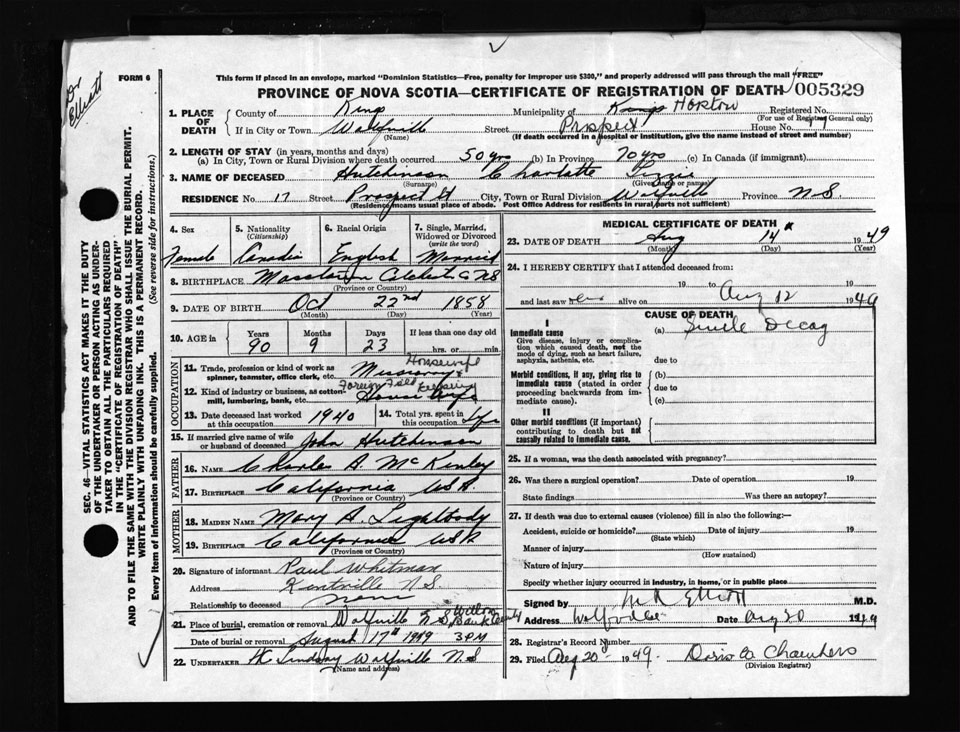 Dr
Elliott
FORM 6
This form if placed in an envelope, marked "Dominion Statistics—Free, penalty for improper use $300," and properly addressed will pass through the mail "FREE"
PROVINCE OF NOVA SCOTIA—CERTIFICATE OF REGISTRATION OF DEATH 005329
1. PLACE OF DEATH County of Kings Municipality of Kings Horton Registered No.
(For use of Registrar General only)
If in City or Town Wolfville Street Prospect House No. 17
(Name) (If death occurred in a hospital or institution, give the name instead of street and number)
2. LENGTH OF STAY (in years, months and days)
(a) In City, Town or Rural Division where death occurred 50 yrs (b) In Province 70 yrs (c) In Canada (if immigrant)
3. NAME OF DECEASED Hutchinson Charlotte Lizzie
(Surname) (Given name or names)
RESIDENCE No. 17 Street Prospect St City, Town or Rural Division Wolfville Province N S
(Residence means usual place of abode. Post Office Address for residents in rural parts not sufficient)
4. Sex 5. Nationality (Citizenship) 6. Racial Origin 7. Single, Married, Widowed or Divorced (write the word)
Female Canadia English Married
8. BIRTHPLACE N S
(Province or Country)
9. DATE OF BIRTH Oct 22nd 1858
(Month) (Day) (Year)
10. AGE in Years Months Days If less than one day old
90 9 23 hrs. or min.
OCCUPATION
11. Trade, profession or kind of work as spinner, teamster, office clerk, etc. Missionary & Housewife
12. Kind of industry or business, as cotton-mill, lumbering, bank, etc. Foreign Field House wife
13. Date deceased last worked at this occupation 1940 14. Total yrs. spent in this occupation life
15. If married give name of wife or husband of deceased John Hutchinson
FATHER
16. NAME Charles A. McKinley
17. BIRTHPLACE California USA.
(Province or Country)
MOTHER
18. MAIDEN NAME Mary A. Lightbody
19. BIRTHPLACE California USA
(Province or Country)
20. Signature of informant Paul Whitman
Address Kentville N.S.
Relationship to deceased None
21. Place of burial, cremation or removal Wolfville N S Willow Bank Cemetery
Date of burial or removal August 17th 1949 3 PM
22. UNDERTAKER H C Lindsay Wolfville N.S
(Name and address)
MEDICAL CERTIFICATE OF DEATH
23. DATE OF DEATH Aug 14 1949
(Month) (Day) (Year)
24. I HEREBY CERTIFY that I attended deceased from:
19 to Aug 12
and last saw her alive on 1949
CAUSE OF DEATH
I
Immediate cause (a) Senile Decay
Give disease, injury or complication which caused death, not the mode of dying, such as heart failure, asphyxia, asthenia, etc. due to
Morbid conditions, if any, giving rise to immediate cause (stated in order proceeding backwards from immediate cause). (b)
due to
(c)
II
Other morbid conditions (if important) contributing to death but not causally related to immediate cause.
25. If a woman, was the death associated with pregnancy?
26. Was there a surgical operation? Date of operation 19
State findings Was there an autopsy?
27. If death was due to external causes (violence) fill in also the following:
Accident, suicide or homicide? Date of injury 19
(State which)
Manner of injury
(How sustained)
Nature of injury
Specify whether injury occurred in industry, in home, or in public place
Signed by M R Elliott M.D.
Address Wolfville Date Aug 20 1949
28. Registrar's Record Number
29. Filed Aug 20 1949. Chambers
(Division Registrar)
SEC. 46—VITAL STATISTICS ACT MAKES IT THE DUTY
OF THE UNDERTAKER OR PERSON ACTING AS UNDER-
TAKER TO OBTAIN ALL THE PARTICULARS REQUIRED
IN THE "CERTIFICATE OF REGISTRATION OF DEATH"
AND TO FILE THE SAME WITH THE DIVISION REGISTRAR WHO SHALL ISSUE THE BURIAL PERMIT.
WRITE PLAINLY WITH UNFADING INK. THIS IS A PERMANENT RECORD.
Every item of information should be carefully supplied. (See reverse side for instructions.)